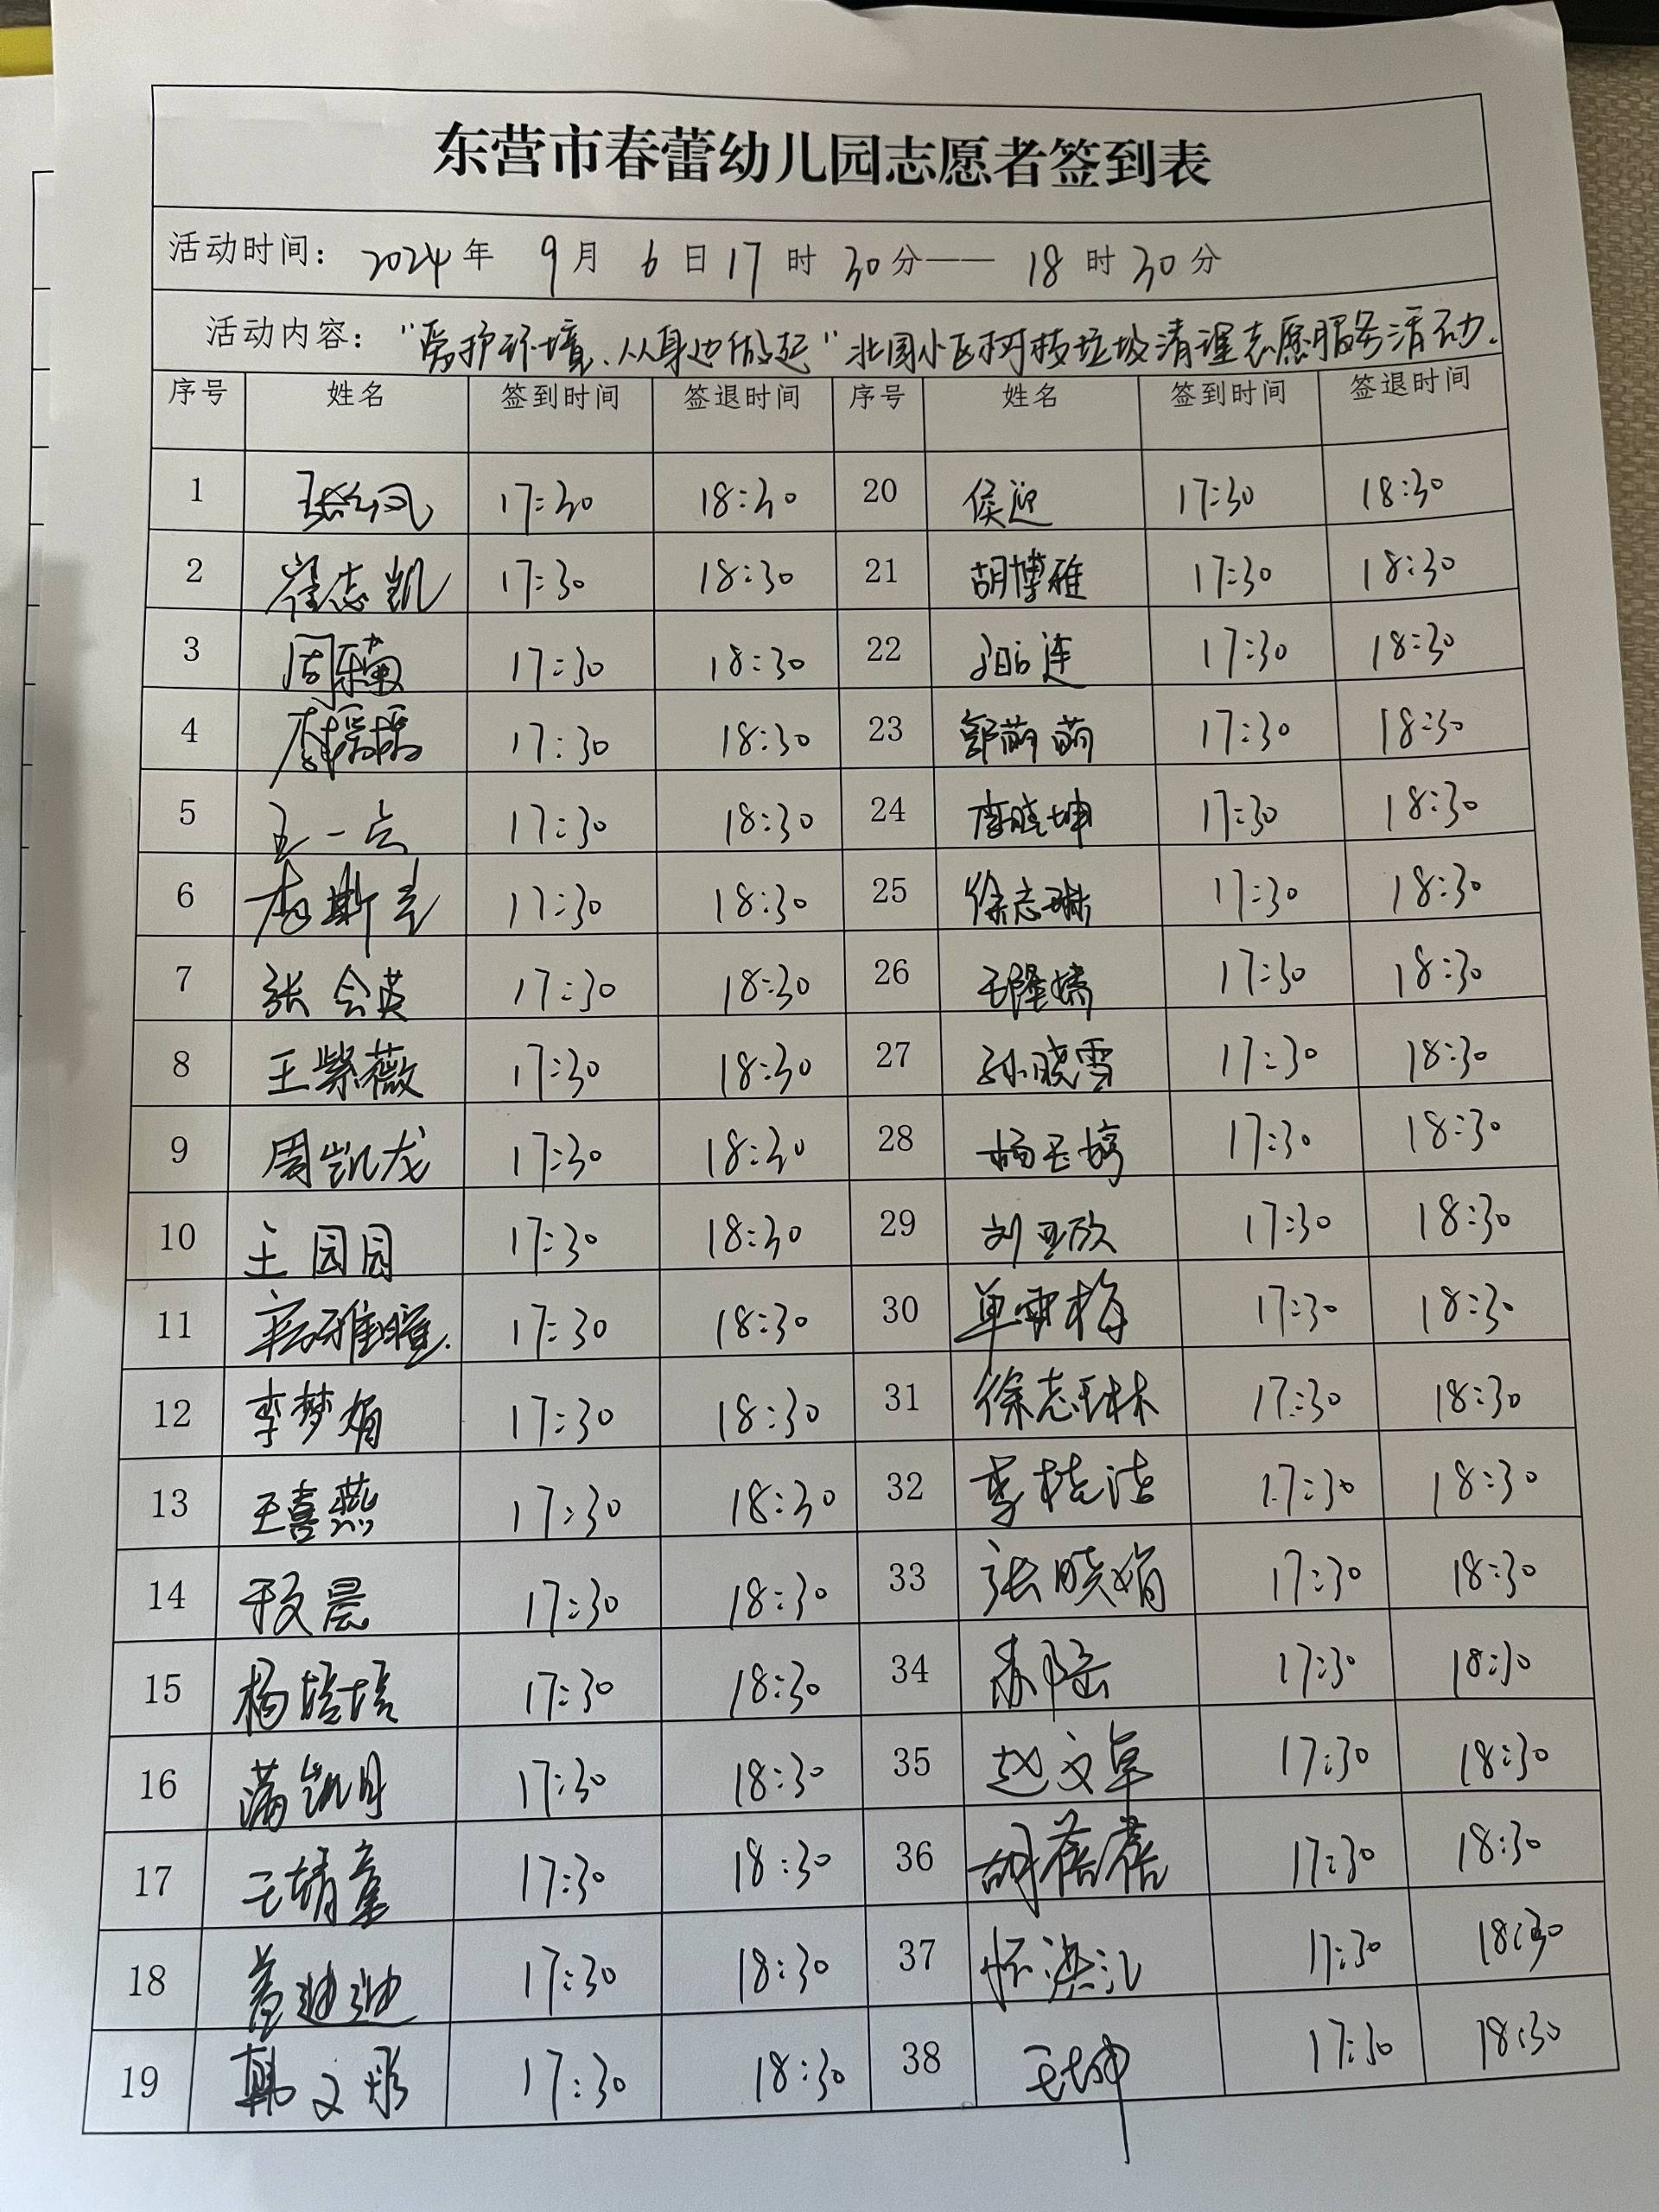 东营市春蕾幼儿园志愿者签到表
活动时间：2024年 9月 6日17时30分——18时30分
活动内容：“爱护环境、从身边做起”北园小区树枝垃圾清理志愿服务活动.
序号 姓名 签到时间 签退时间 序号 姓名 签到时间 签退时间
1 17:30 18:30 20 侯迎 17:30 18:30
2 崔志凯 17:30 18:30 21 胡博雅 17:30 18:30
3 17:30 18:30 22 17:30 18:30
4 17:30 18:30 23 郭萌萌 17:30 18:30
5 王一点 17:30 18:30 24 李晓坤 17:30 18:30
6 17:30 18:30 25 徐志琳 17:30 18:30
7 张会英 17:30 18:30 26 王隆嬌 17:30 18:30
8 王紫薇 17:30 18:30 27 孙晓雪 17:30 18:30
9 周凯龙 17:30 18:30 28 杨玉婷 17:30 18:30
10 王园园 17:30 18:30 29 刘亚欣 17:30 18:30
11 17:30 18:30 30 单雪梅 17:30 18:30
12 李梦娟 17:30 18:30 31 徐志琳 17:30 18:30
13 王喜燕 17:30 18:30 32 李桂洁 17:30 18:30
14 于文晨 17:30 18:30 33 张晓娟 17:30 18:30
15 杨培培 17:30 18:30 34 17:30 18:30
16 满凯月 17:30 18:30 35 赵文卓 17:30 18:30
17 王靖童 17:30 18:30 36 胡蓓蓓 17:30 18:30
18 17:30 18:30 37 17:30 18:30
19 韩文彤 17:30 18:30 38 王坤 17:30 18:30